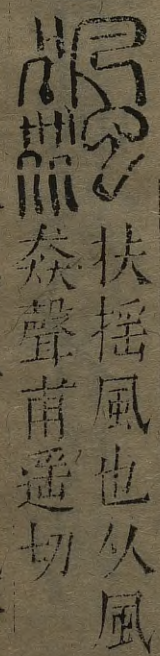 飆
扶摇風也从風
猋聲甫遥切